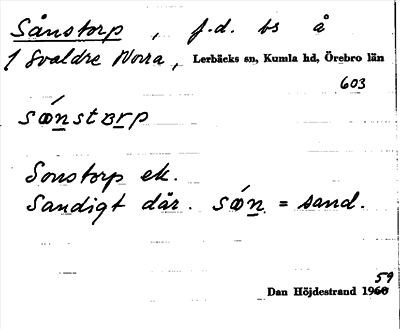 Sånstorp, f.d. bs å
1 Svaldre Norra, Lerbäcks sn, Kumla hd, Örebro län
603
sǿnstɒrp
Sonstorp ek.
Sandigt där. sǿn = sand.
59
Dan Höjdestrand 1960